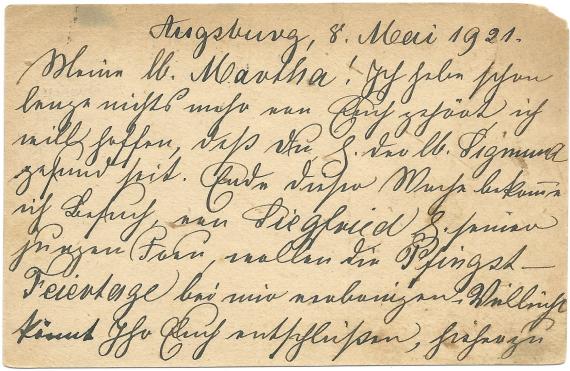 Augsburg, 8. Mai 1921.
Meine lb. Martha! Ich habe schon
lange nichts mehr von Euch gehört ich
will hoffen, daß Du & der lb. Sigmund
gesund seit. Ende dieser Woche bekomme
ich Besuch, von Siegfried & seiner
jungen Frau wollen die Pfingst-
Feiertage bei mir verbringen. Villeicht
könnt Ihr Euch entschlüßen, hieherzu